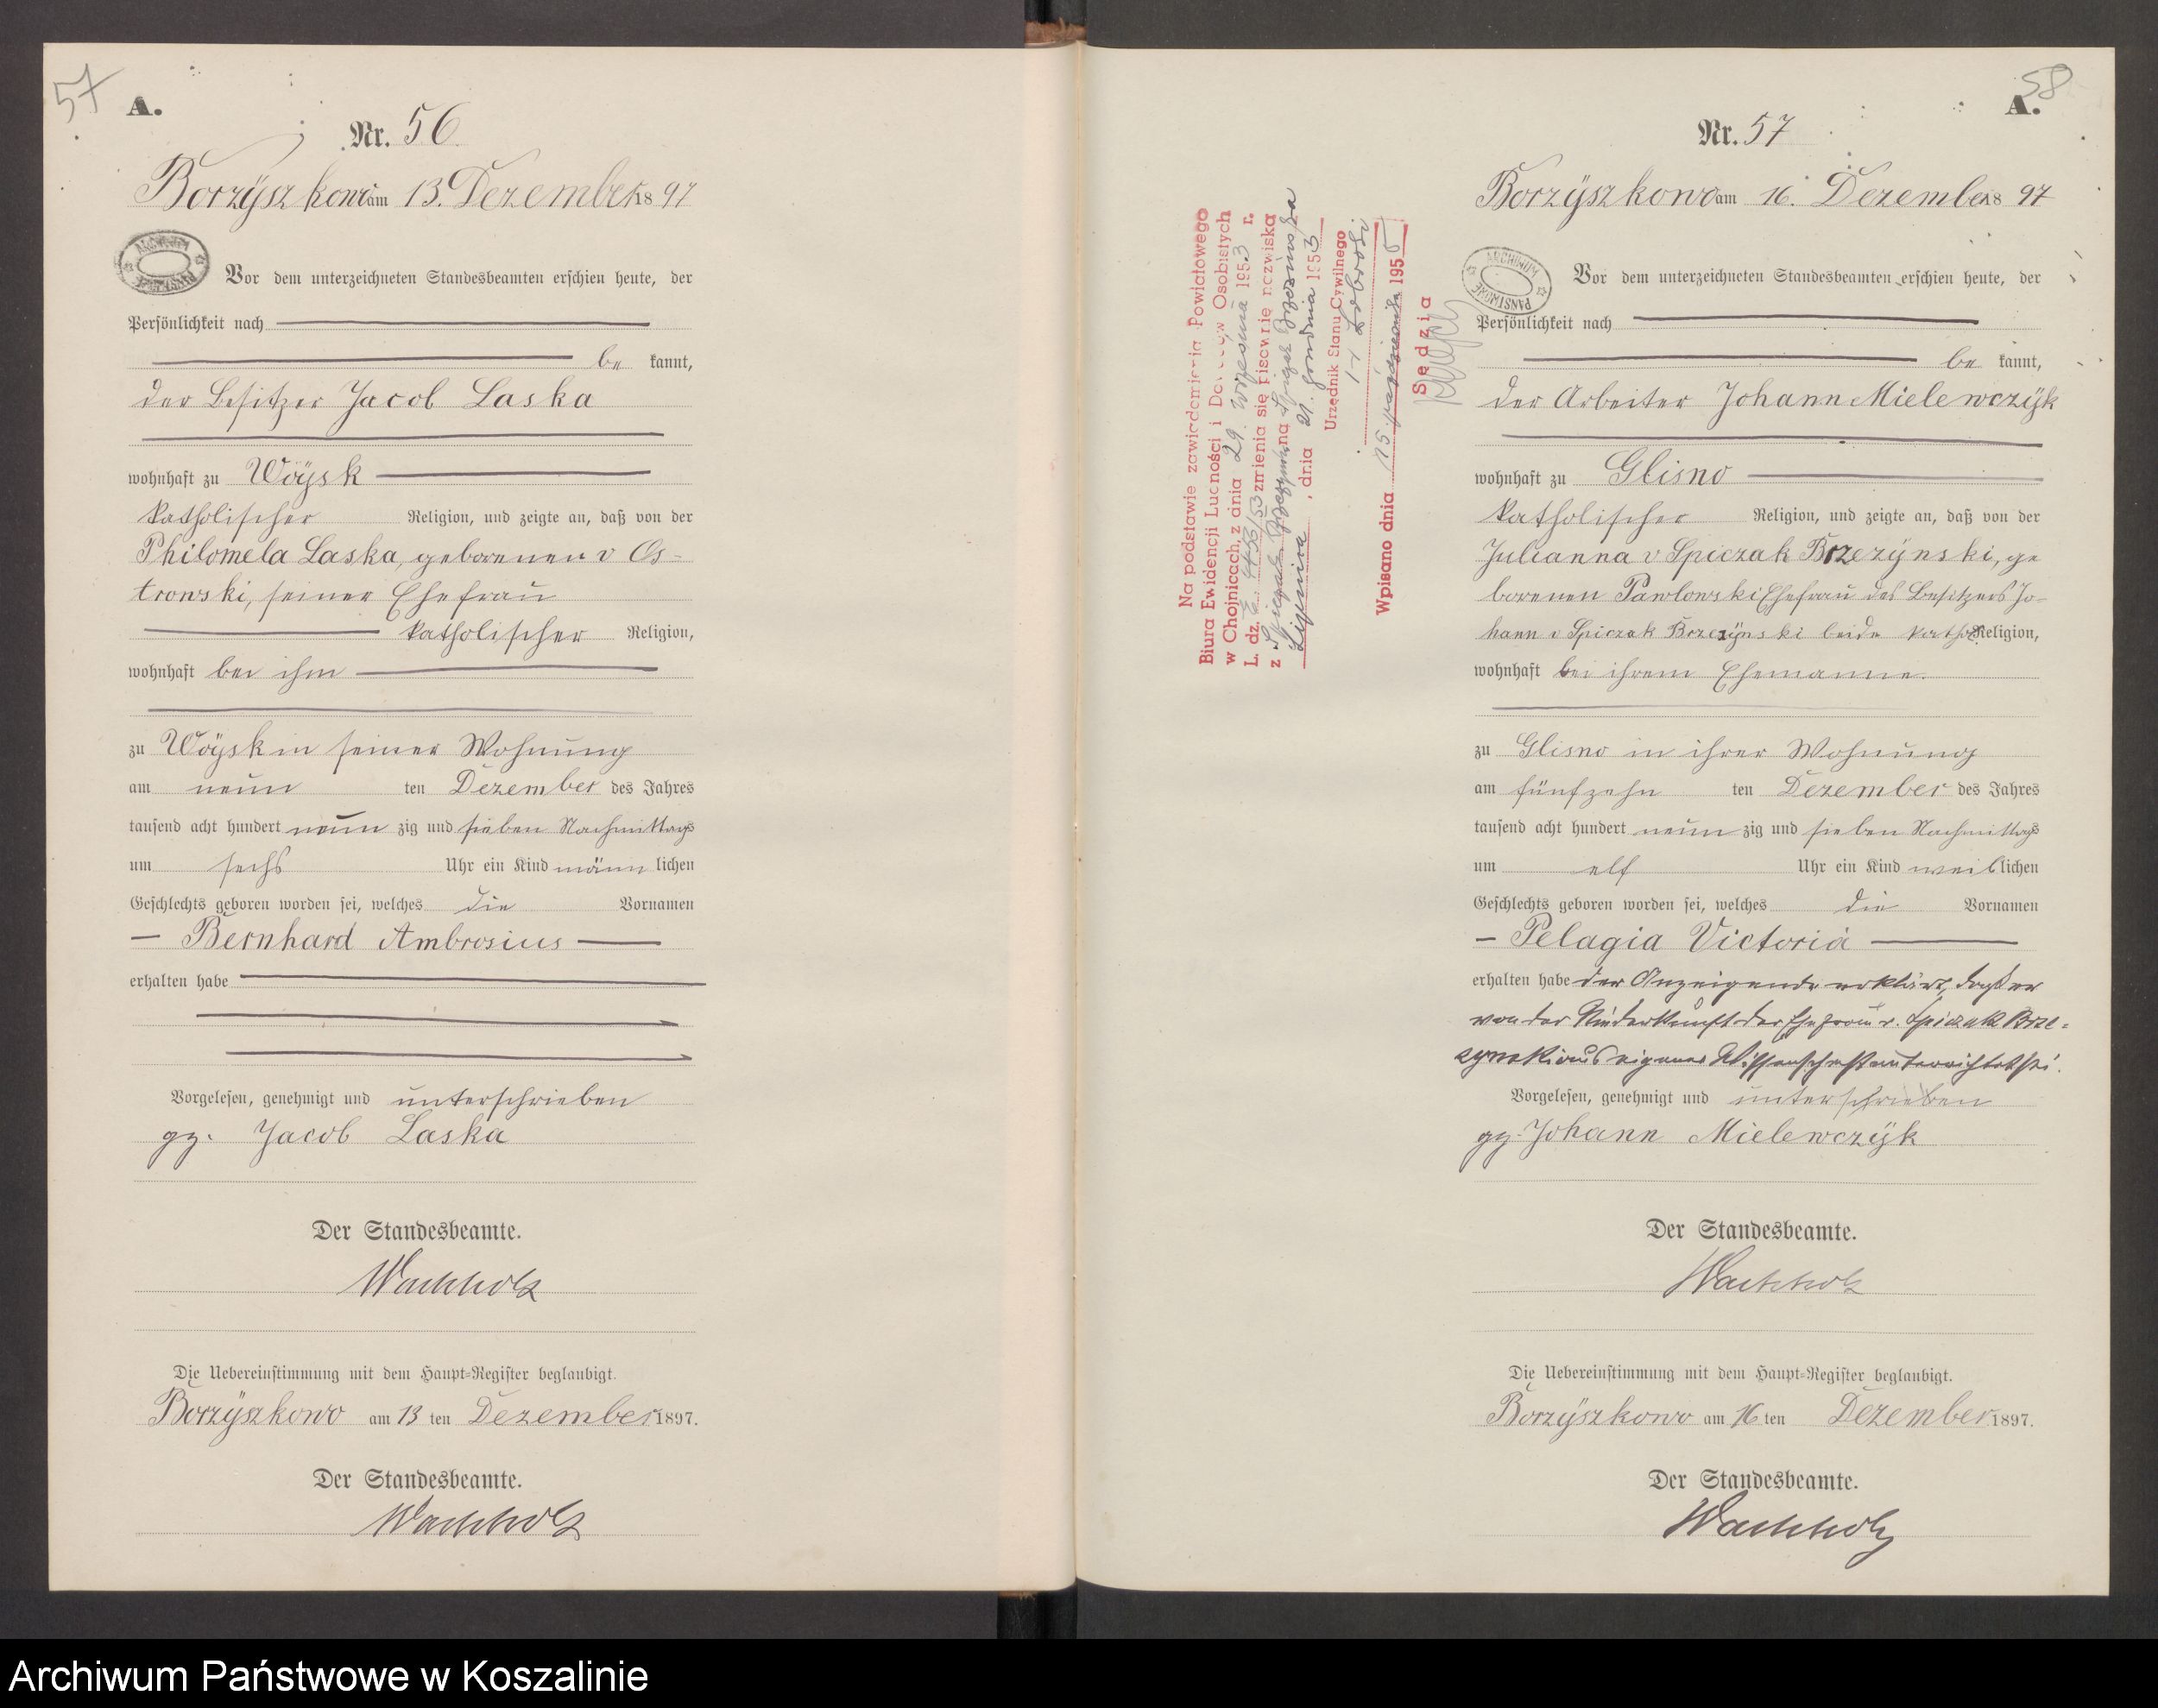 57
A.
Nr. 56
Borzÿszkowo am 13. Dezember 1897
ARCHIWUM PAŃSTWOWE
Vor dem unterzeichneten Standesbeamten erschien heute, der
Persönlichkeit nach
be kannt,
der Besitzer Jacob Laska
wohnhaft zu Wöÿsk
katholischer Religion, und zeigte an, daß von der
Philomela Laska, geborenen v Os-
trowski, seiner Ehefrau
katholischer Religion,
wohnhaft bei ihm
zu Wöÿsk in seiner Wohnung
am neun ten Dezember des Jahres
tausend acht hundert neun zig und sieben Nachmittags
um sechs Uhr ein Kind männ lichen
Geschlechts geboren worden sei, welches die Vornamen
— Bernhard Ambrosius —
erhalten habe
Vorgelesen, genehmigt und unterschrieben
gz. Jacob Laska
Der Standesbeamte.
Wachholz
Die Uebereinstimmung mit dem Haupt-Register beglaubigt.
Borzÿszkowo am 13 ten Dezember 1897.
Der Standesbeamte.
Wachholz
Na podstawie zawiadomienia Powiatowego
Biura Ewidencji Ludności i Dowodów Osobistych
w Chojnicach, z dnia 29. września 1953 r.
L. dz. 4456/53 zmienia się pisownię nazwiska
z Spiczak Brzezyńską na Spiczak Brzezińska
Lipnica, dnia 21. grudnia 1953
Urzędnik Stanu Cywilnego
Wpisano dnia 15 października 1955
Sędzia
58
A.
Nr. 57
Borzÿszkowo am 16. Dezember 1897
ARCHIWUM PAŃSTWOWE
Vor dem unterzeichneten Standesbeamten erschien heute, der
Persönlichkeit nach
be kannt,
der Arbeiter Johann Mielewczÿk
wohnhaft zu Glisno
katholischer Religion, und zeigte an, daß von der
Julianna v Spiczak Brzezÿnski, ge
borenen Pawlowski Ehefrau des Besitzers Jo-
hann v Spiczak Brzezÿnski beide kathol. Religion,
wohnhaft bei ihrem Ehemanne.
zu Glisno in ihrer Wohnung
am fünfzehn ten Dezember des Jahres
tausend acht hundert neun zig und sieben Nachmittags
um elf Uhr ein Kind weib lichen
Geschlechts geboren worden sei, welches die Vornamen
— Pelagia Victoria —
erhalten habe der Anzeigende erklärt, daß er
von der Niederkunft der Ehefrau v. Spiczak Brze-
zynski aus eigener Wissenschaft unterrichtet sei.
Vorgelesen, genehmigt und unterschrieben
gz. Johann Mielewczÿk
Der Standesbeamte.
Wachholz
Die Uebereinstimmung mit dem Haupt-Register beglaubigt.
Borzÿszkowo am 16 ten Dezember 1897.
Der Standesbeamte.
Wachholz
Archiwum Państwowe w Koszalinie